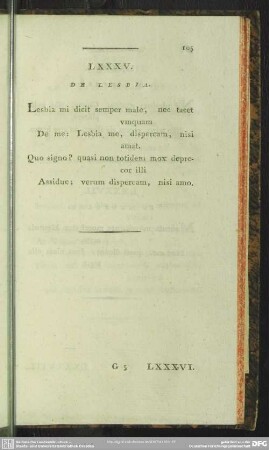 105
LXXXV.
DE LESBIA.
Lesbia mi dicit semper male, nec tacet
vmquam
De me: Lesbia me, dispeream, nisi
amat.
Quo signo? quasi non totidem mox depre-
cor illi
Assidue; verum dispeream, nisi amo.
G 5 LXXXVI.